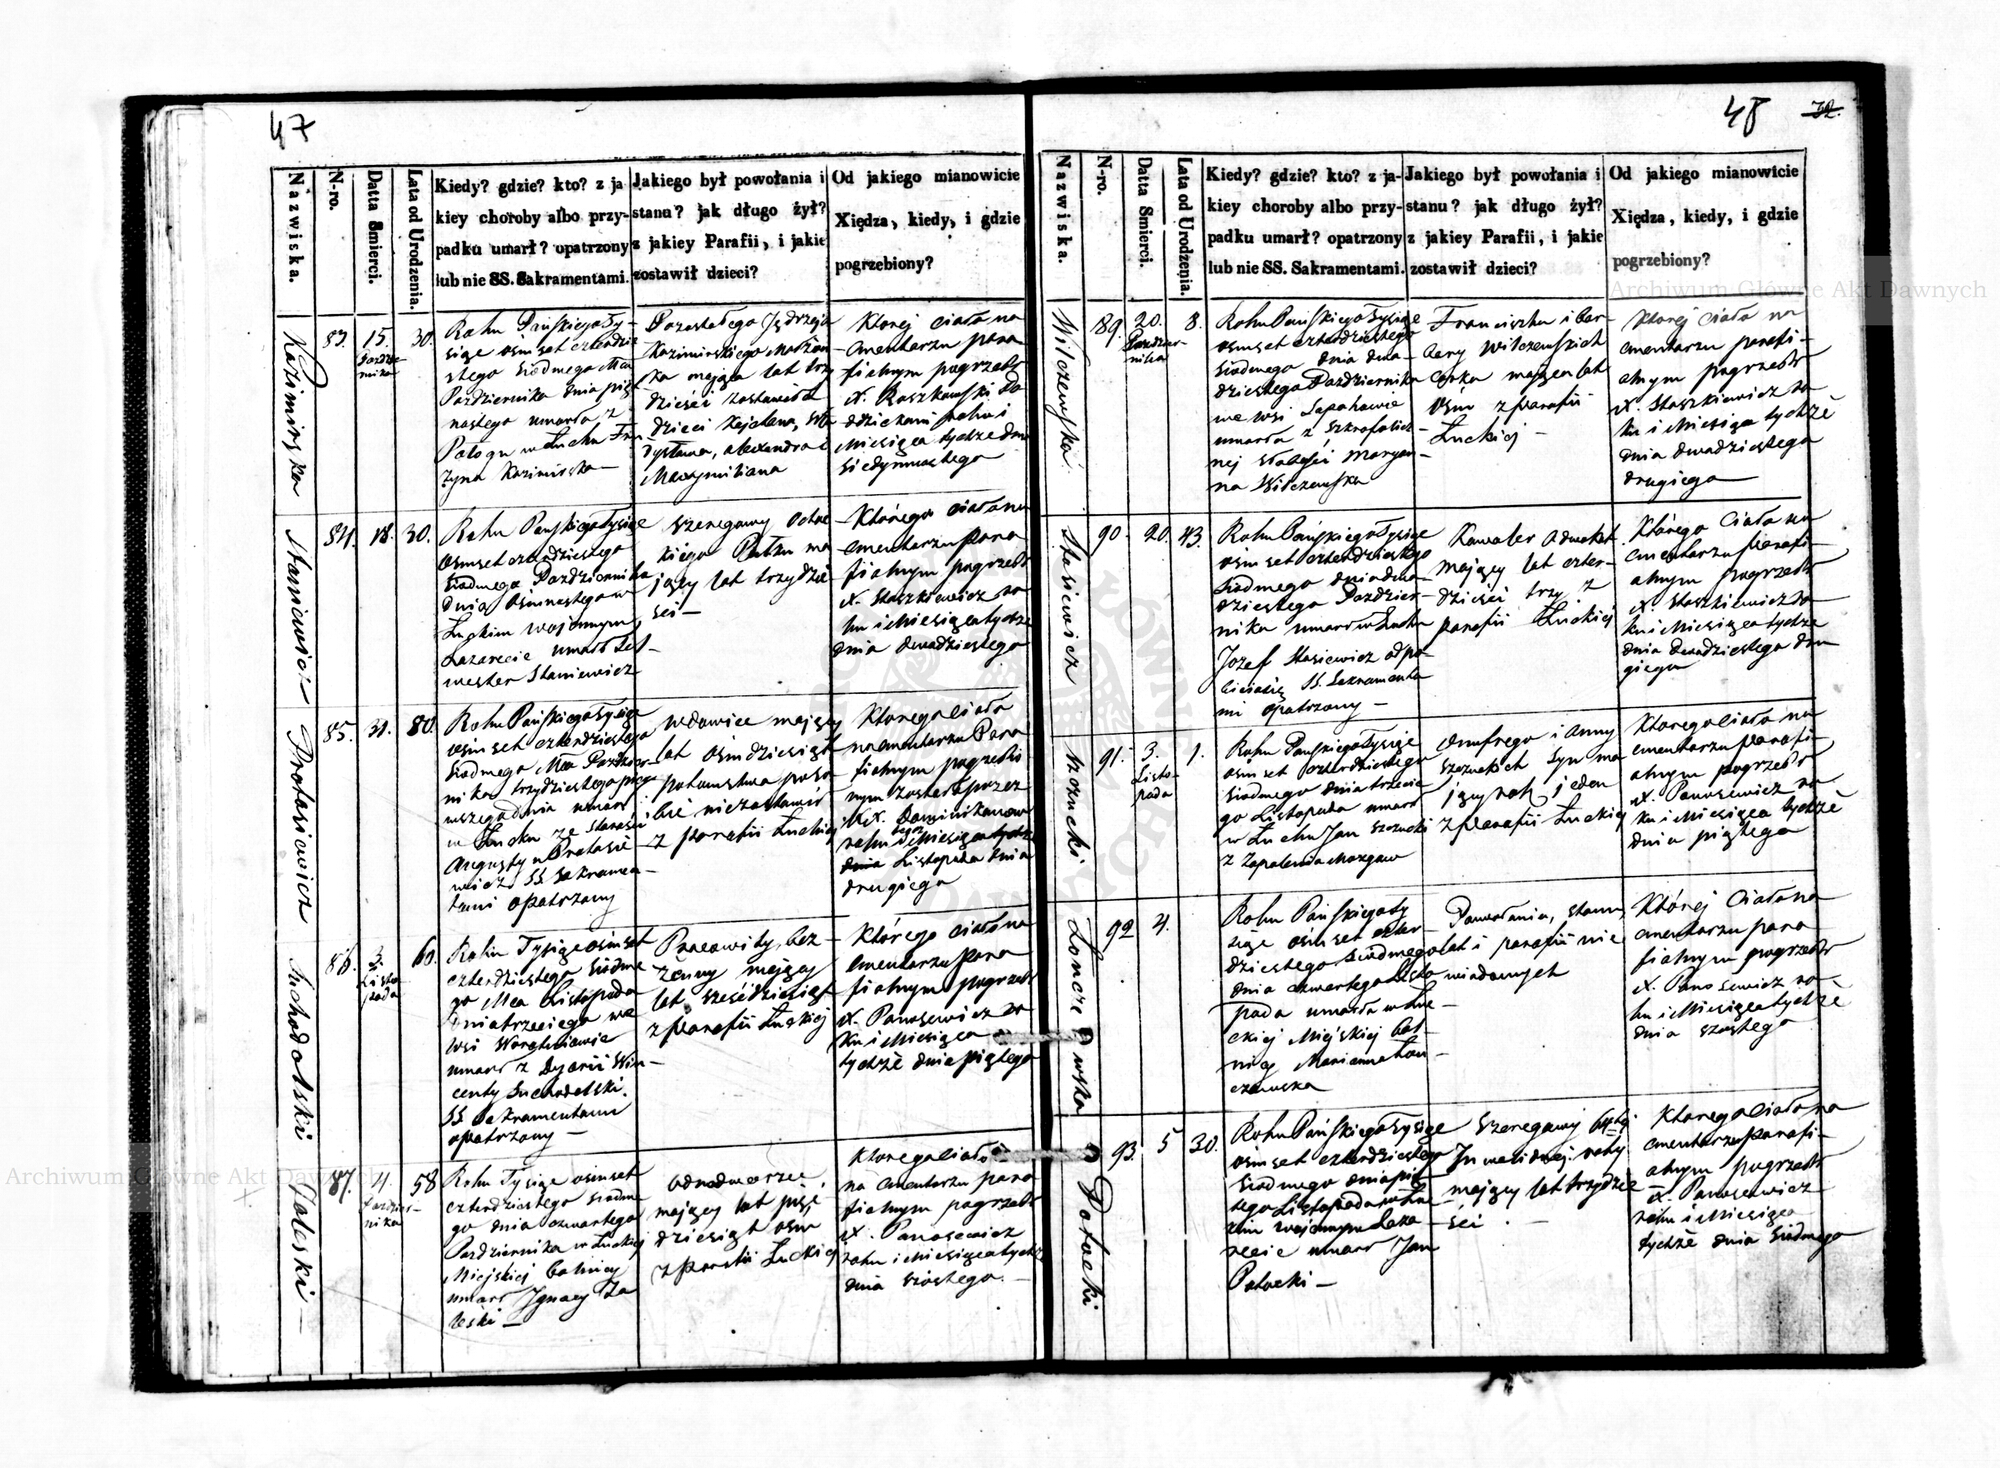 47
Nazwiska.
N-ro.
Datta Smierci.
Lata od Urodzenia.
Kiedy? gdzie? kto? z ja
kiey choroby albo przy-
padku umarł? opatrzony
lub nie SS. Sakramentami.
Jakiego był powołania i
stanu? jak długo żył?
z jakiey Parafii, i jakie
zostawił dzieci?
Od jakiego mianowicie
Xiędza, kiedy, i gdzie
pogrzebiony?
Kazimirska
83.
15.
Paździer
nika
30.
Roku Pańskiego Ty-
siąc osmset czterdzie
stego siódmego Mca
Października dnia pięt
nastego umarła z
Połogu w Łucku
Kazimirska —
Pozostałego Jędrzeja
Kazimirskiego Małżon
ka mająca lat trzy
dzieści zostawiła
dzieci
Alexandra i
Maxymiliana
Ktorej ciało na
cmentarzu para
fialnym pogrzebł
X. Raszkowski
roku i
Miesiąca tychże dnia
siedymnastego
Staniewicz
84.
18.
30.
Roku Pańskiego Tysiąc
osmset czterdziestego
siodmego Października
dnia osmnastego w
Łuckim wojennym
Lazarecie umarł Syl-
wester Staniewicz
Szeregowy
kiego Pułku ma
jący lat trzydzie
ści —
Którego ciało na
cmentarzu para
fialnym pogrzebł
X. Staszkiewicz ro
ku i Miesiąca tychże
dnia dwudziestego
Protasiewicz
85.
31.
80.
Roku Pańskiego Tysiąc
osmset czterdziestego
siodmego Mca Paździer
nika trzydziestego pier
wszego dnia umarł
w Łucku ze starości
Augustyn Protasie
wicz SS Sakramen
tami opatrzony
Wdowiec mający
lat osmdziesiąt
potomstwa po so
bie niezostawił
z parafii Łuckiej
Ktorego ciało
na cmentarzu Para
fialnym pogrzebio
nym został przez
XX. Dominikanow
roku i Miesiąca tychże
dnia Listopada dnia
drugiego
Suchodolski
86.
3.
Listo
pada
60.
Roku Tysiąc osmset
czterdziestego siodme
go Mca Listopada
dnia trzeciego we
wsi
umarł z Dyarii Win-
centy Suchodolski.
SS Sakramentami
opatrzony —
Pracowity, bez-
żenny mający
lat sześćdziesiąt
z parafii Łuckiej
Którego ciało na
cmentarzu para
fialnym pogrzebł
X. Panasewicz ro
ku i Miesiąca
tychże dnia piątego
Zaleski —
87.
4.
Paździer-
nika
58
Roku Tysiąc osmset
czterdziestego siodme
go dnia czwartego
Października w Łuckiej
Miejskiej Bolnicy
umarł Ignacy Za
leski —
Odnodworzec,
mający lat pięć
dziesiąt osm
z Parafii Łuckiej
Ktorego ciało
na cmentarzu para
fialnym pogrzebł
X. Panasewicz
roku i Miesiąca tychże
dnia szóstego. —
48
72.
Nazwiska.
N-ro.
Datta Smierci.
Lata od Urodzenia.
Kiedy? gdzie? kto? z ja-
kiey choroby albo przy-
padku umarł? opatrzony
lub nie SS. Sakramentami.
Jakiego był powołania i
stanu? jak długo żył?
z jakiey Parafii, i jakie
zostawił dzieci?
Od jakiego mianowicie
Xiędza, kiedy, i gdzie
pogrzebiony?
Wilczewska.
89.
20.
Paździer-
nika
8.
Roku Pańskiego Tysiąc
osmset czterdziestego
siodmego dnia dwu-
dziestego Października
we wsi
umarła z Szkrofulicz-
nej słabości Maryan-
na Wilczewska
Franciszka i Bar-
bary Wilczewskich
córka mająca lat
osm z parafii
Łuckiej —
Ktorej ciało na
cmentarzu parafi-
alnym pogrzebł
X. Staszkiewicz ro
ku i Miesiąca tychże
dnia dwudziestego
drugiego
Stasiewicz
90.
20.
43.
Roku Pańskiego Tysiąc
osmset czterdziestego
siodmego dnia dwu-
dziestego Paździer-
nika umarł w Łucku
Jozef Stasiewicz
SS. Sakramenta
mi opatrzony —
Kawaler Adwokat
mający lat czter-
dzieści trzy z
parafii Łuckiej
Którego ciało na
cmentarzu parafi-
alnym pogrzebł
X. Staszkiewicz ro
ku i Miesiąca tychże
dnia dwudziestego dru
giego
Szczucki
91.
3.
Listo-
pada
1.
Roku Pańskiego Tysiąc
osmset czterdziestego
siodmego dnia trzecie
go Listopada umarł
w Łucku Jan Szczucki
z Zapalenia Mozgow
Onufrego i Anny
Szczuckich syn ma
jący rok jeden
z parafii Łuckiej
Ktorego ciało na
cmentarzu parafi-
alnym pogrzebł
X. Panasewicz ro
ku i Miesiąca tychże
dnia piątego
92
4.
Roku Pańskiego Ty
siąc osmset czter-
dziestego siodmego
dnia czwartego Listo
pada umarła w Łu-
ckiej Miejskiej Bol-
nicy Marianna Łon-
czewska
Powołania, stanu,
lat i parafii nie
wiadomych
Której ciało na
cmentarzu para
fialnym pogrzebł
X. Panasewicz ro
ku i Miesiąca tychże
dnia szóstego
Potocki
93.
5
30.
Roku Pańskiego Tysiąc
osmset czterdziestego
siodmego dnia pią-
tego Listopada w Łu-
ckim wojennym Laza-
recie umarł Jan
Potocki —
Szeregowy
Inwalidnej roty
mający lat trzydzie
ści. —
Ktorego ciało na
cmentarzu parafi-
alnym pogrzebł
X. Panasewicz
roku i Miesiąca
tychże dnia siodmego
Archiwum Główne Akt Dawnych
Archiwum Główne Akt Dawnych